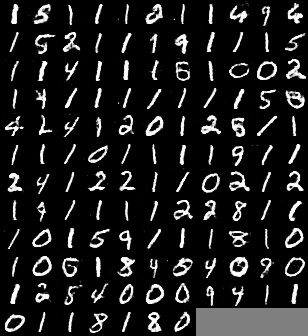 1 5 1 1 1 2 1 1 4 9 4
1 5 2 1 1 1 9 1 1 1 5
1 1 4 1 1 1 6 1 0 0 2
1 4 1 1 1 1 1 1 1 5 8
4 2 4 1 2 0 1 2 8 1 1
1 1 1 0 1 1 1 1 9 1 1
2 4 1 2 2 1 1 0 2 1 2
1 9 1 1 1 1 2 2 8 1 1
1 0 1 5 9 1 1 1 8 1 0
1 0 5 1 8 4 8 4 0 9 0
1 2 5 4 0 0 0 9 4 1 1
0 1 1 8 1 8 0